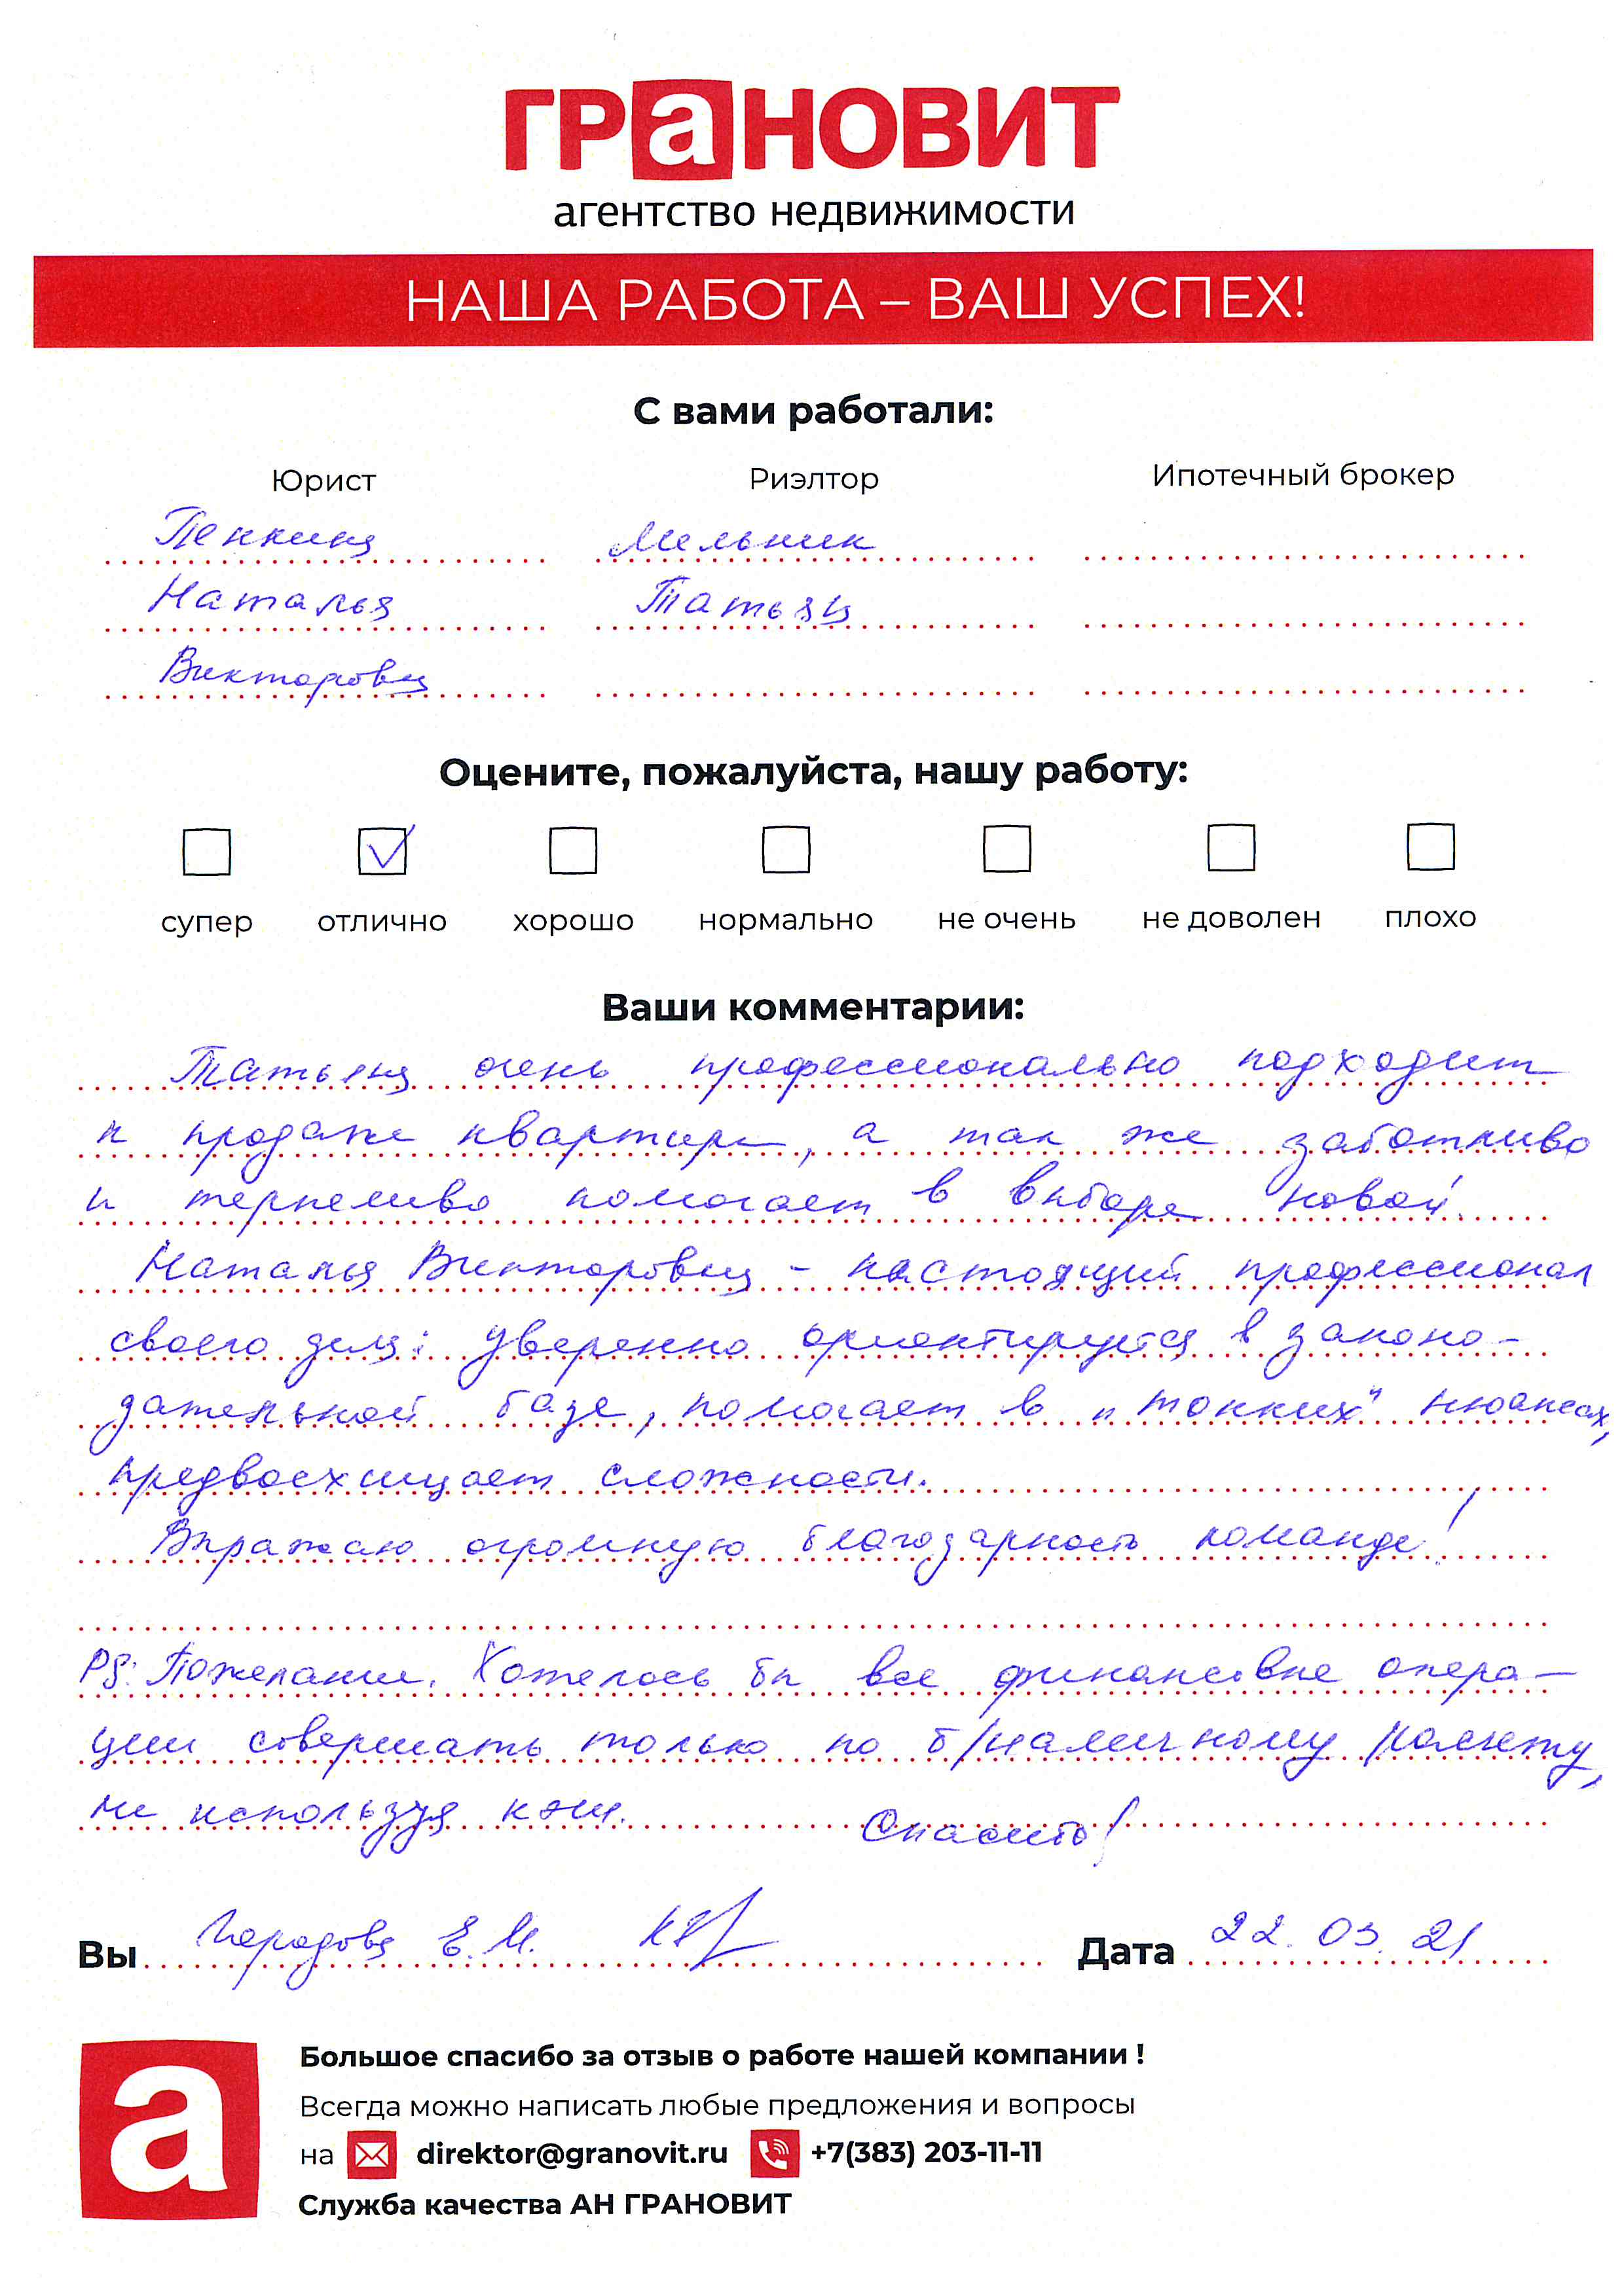 ГРаНОВИТ
агентство недвижимости
НАША РАБОТА – ВАШ УСПЕХ!
С вами работали:
Юрист Риэлтор Ипотечный брокер
Пенкина Мельник
Наталья Татьяна
Викторовна
Оцените, пожалуйста, нашу работу:
супер отлично хорошо нормально не очень не доволен плохо
Ваши комментарии:
Татьяна очень профессионально подходит
к продаже квартиры, а так же заботливо
и терпеливо помогает в выборе новой.
Наталья Викторовна - настоящий профессионал
своего дела: уверенно ориентируется в законо-
дательной базе, помогает в "тонких" нюансах,
предвосхищает сложности.
Выражаю огромную благодарность команде!
PS: Пожелание. Хотелось бы все финансовые опера-
ции совершать только по б/наличному расчету,
не используя кэш. Спасибо!
Вы Городова Е.М. Дата 22.03.21
а
Большое спасибо за отзыв о работе нашей компании !
Всегда можно написать любые предложения и вопросы
на direktor@granovit.ru +7(383) 203-11-11
Служба качества АН ГРАНОВИТ